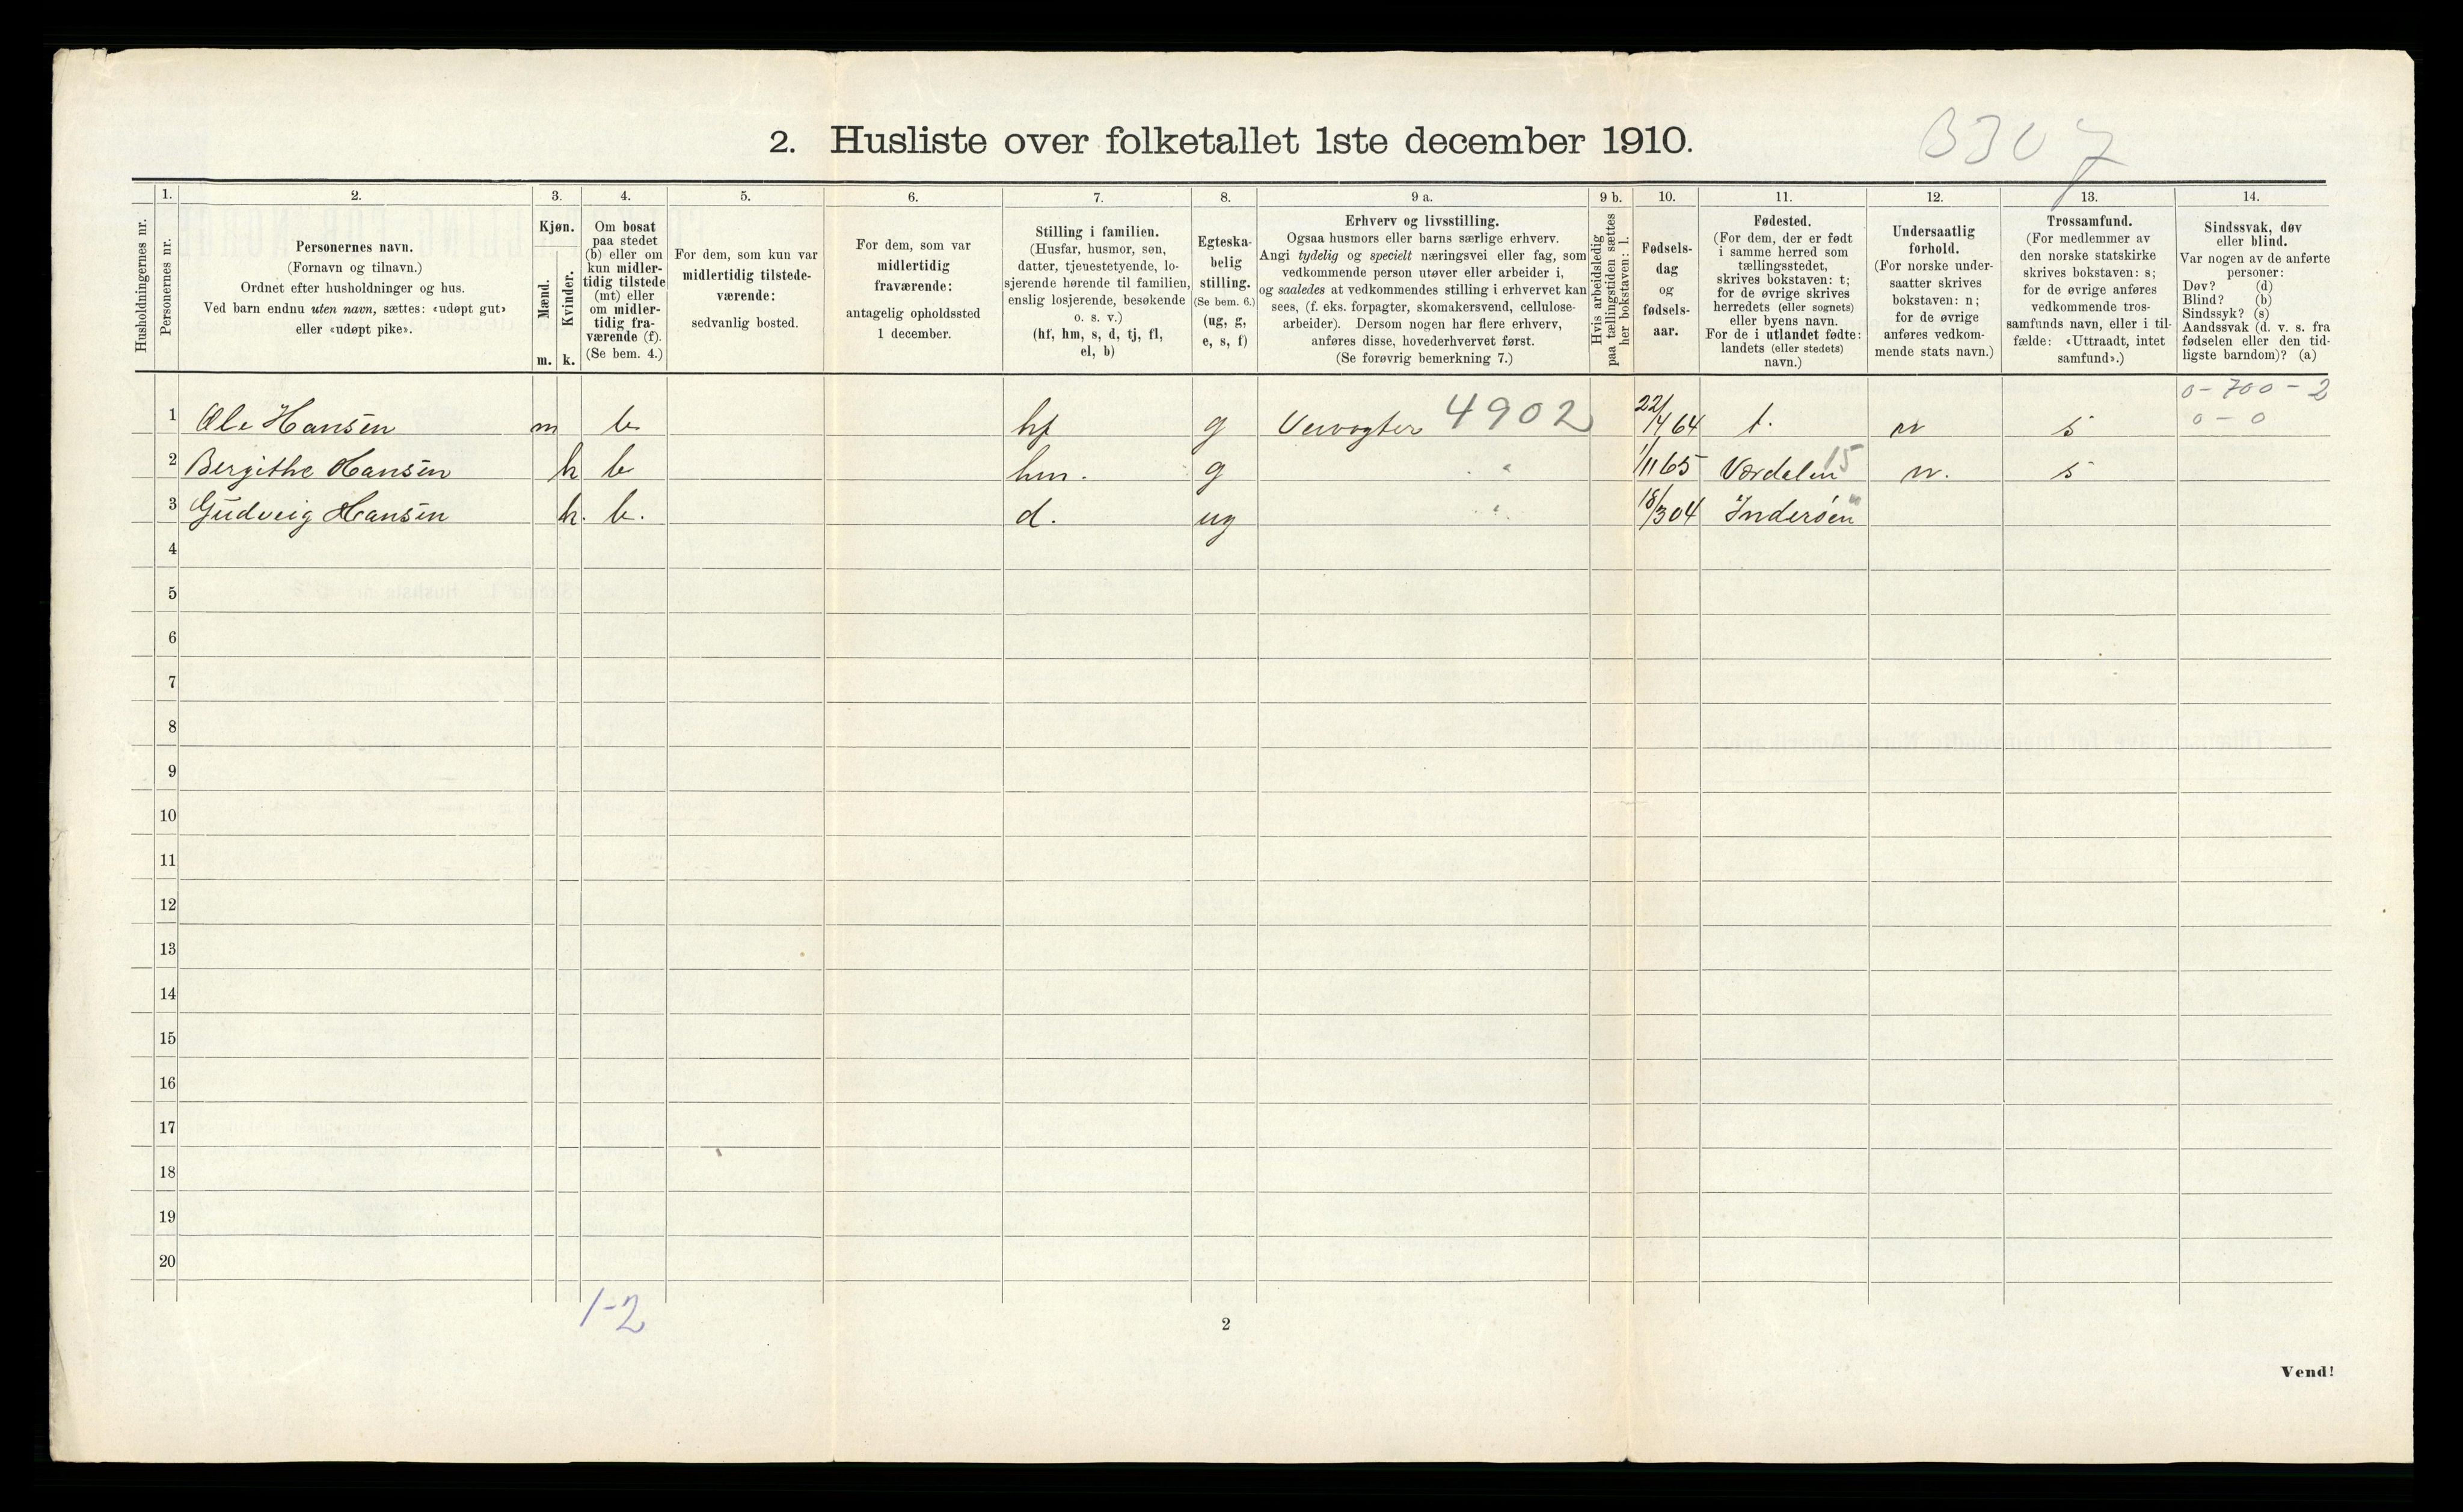 B307
2. Husliste over folketallet 1ste december 1910.
Husholdningernes nr.
1.
Personernes nr.
2.
Personernes navn.
(Fornavn og tilnavn.)
Ordnet efter husholdninger og hus.
Ved barn endnu uten navn, sættes: «udøpt gut»
eller «udøpt pike».
3.
Kjøn.
Mænd.
Kvinder.
m. k.
4.
Om bosat
paa stedet
(b) eller om
kun midler-
tidig tilstede
(mt) eller
om midler-
tidig fra-
værende (f).
(Se bem. 4.)
5.
For dem, som kun var
midlertidig tilstede-
værende:
sedvanlig bosted.
6.
For dem, som var
midlertidig
fraværende:
antagelig opholdssted
1 december.
7.
Stilling i familien.
(Husfar, husmor, søn,
datter, tjenestetyende, lo-
sjerende hørende til familien,
enslig losjerende, besøkende
o. s. v.)
(hf, hm, s, d, tj, fl,
el, b)
8.
Egteska-
belig
stilling.
(Se bem. 6.)
(ug, g,
e, s, f)
9 a.
Erhverv og livsstilling.
Ogsaa husmors eller barns særlige erhverv.
Angi tydelig og specielt næringsvei eller fag, som
vedkommende person utøver eller arbeider i,
og saaledes at vedkommendes stilling i erhvervet kan
sees, (f. eks. forpagter, skomakersvend, cellulose-
arbeider). Dersom nogen har flere erhverv,
anføres disse, hovederhvervet først.
(Se forøvrig bemerkning 7.)
9 b.
Hvis arbeidsledig
paa tællingstiden sættes
her bokstaven: l.
10.
Fødsels-
dag
og
fødsels-
aar.
11.
Fødested.
(For dem, der er født
i samme herred som
tællingsstedet,
skrives bokstaven: t;
for de øvrige skrives
herredets (eller sognets)
eller byens navn.
For de i utlandet fødte:
landets (eller stedets)
navn.)
12.
Undersaatlig
forhold.
(For norske under-
saatter skrives
bokstaven: n;
for de øvrige
anføres vedkom-
mende stats navn.)
13.
Trossamfund.
(For medlemmer av
den norske statskirke
skrives bokstaven: s;
for de øvrige anføres
vedkommende tros-
samfunds navn, eller i til-
fælde: «Uttraadt, intet
samfund».)
14.
Sindssvak, døv
eller blind.
Var nogen av de anførte
personer:
Døv? (d)
Blind? (b)
Sindssyk? (s)
Aandssvak (d. v. s. fra
fødselen eller den tid-
ligste barndom)? (a)
0-700-2
1 Ole Hansen m b hf g 4902 22/4 64 t. n s 0-0
2 Bergithe Hansen k b hm. g " 1/11 65 Værdalen 15 n. s
3 Gudveig Hansen k. b. d. ug " 18/3 04 Inderøen "
4
5
6
7
8
9
10
11
12
13
14
15
16
17
18
19
20
1-2
2
Vend!